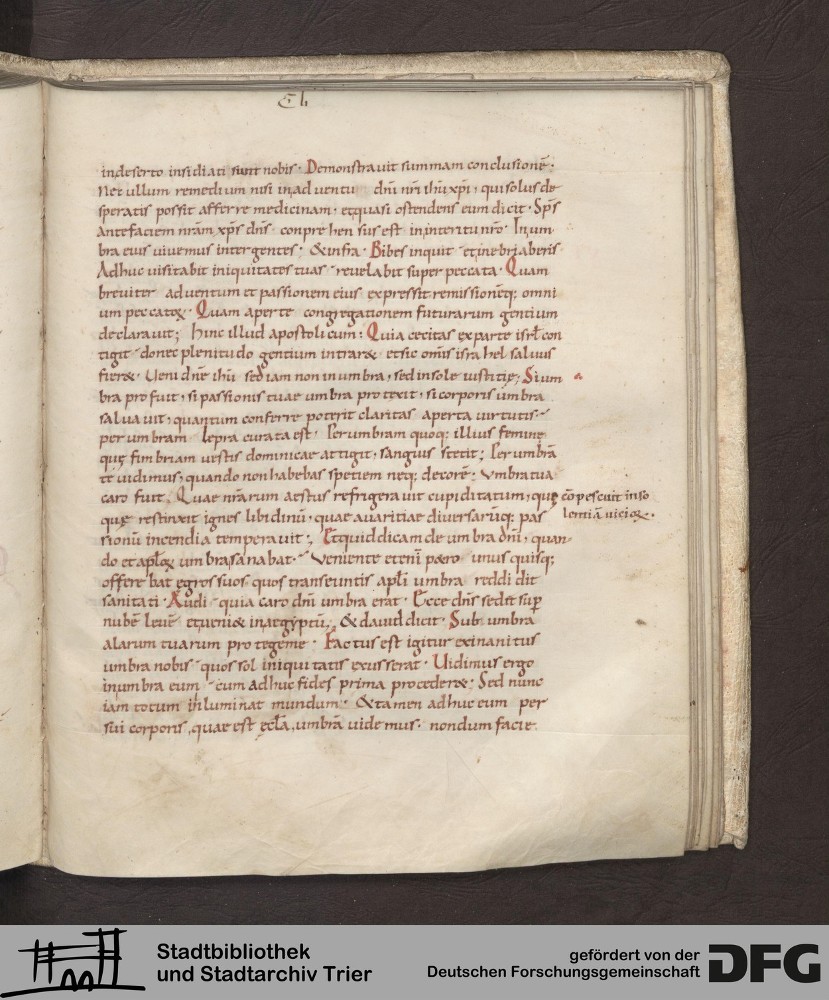 Th
indeserto insidiati sunt nobis · Demonstravit summam conclusionē ·
Nec ullum remedium nisi inadventu dn̄i nr̄i ihū xp̄i, qui solus de
speratis possit afferre medicinam · et quasi ostendens eum dicit · Sp̄s
Ante faciem nr̄am xp̄s dn̄s conprehensus est in interitu nr̄o · In um
bra eius vivemus inter gentes ; & infra · Bibes inquit et inebriaberis
Adhuc visitabit iniquitates tuas revelabit super peccata · Quam
breviter adventum et passionem eius expressit remissionēq; omni
um peccatoꝝ · Quam aperte congregationem futurarum gentium
declaravit ; hinc illud apostolicum : Quia cecitas ex parte isrl̄ con
tigit donec plenitudo gentium intrar& et sic om̄is israhel salvus
fier& · Veni dn̄e ihū sed iam non in umbra, sed in sole iustitię ; Si um
bra profuit, si passionis tuae umbra protexit, si corporis umbra
salvavit, quantum conferre poterit claritas aperta virtutis
per umbram lepra curata est · Per umbram quoq; illius femine
quę fimbriam vestis dominicae attigit, sanguis stetit ; Per umbrā
te vidimus, quando non habebas spetiem neq; decorē · umbra tua
caro fuit, Quae nr̄arum aestus refrigeravit cupiditatum, quę
cōpescuit inso
lentiā vicioꝝ ·
quę restinxit ignes libidinū, quae avaritiae diversarūq; pas
sionū incendia temperavit ; Et quid dicam de umbra dn̄i, quan
do et apl̄oꝝ umbra sanabat · Veniente etenī p&ro unus quisq;
offerebat egros suos quos transeuntis apl̄i umbra reddidit
sanitati · Audi quia caro dn̄i umbra erat · Ecce dn̄s sedit sup̄
nubē levē et veni& in aegyptū, & david dicit · Sub umbra
alarum tuarum protege me · Factus est igitur exinanitus
umbra nobis quos sol iniquitatis excusserat · Vidimus ergo
in umbra eum cum adhuc fides prima proceder& · Sed nunc
iam totum inluminat mundum · & tamen adhuc eum per
sui corporis, quae est ęcl̄a, umbrā videmus · nondum facie ·
Stadtbibliothek
und Stadtarchiv Trier
gefördert von der
Deutschen Forschungsgemeinschaft
DFG